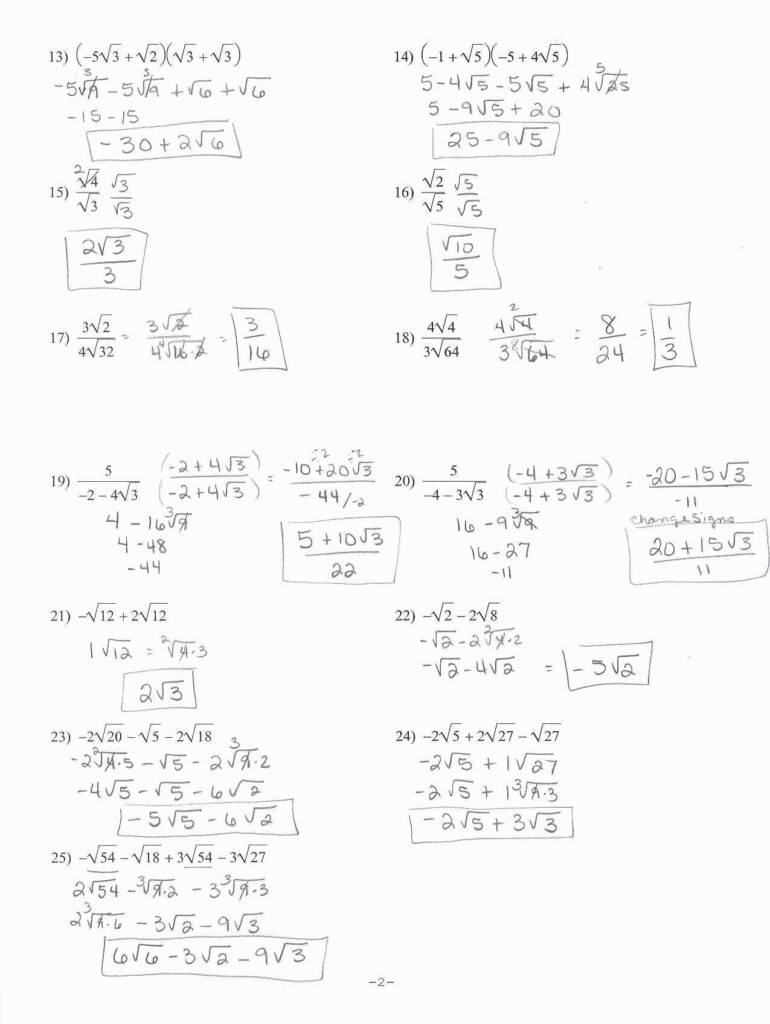 13) (-5√3 + √2)(√3 + √3)
-5√9 3 - 5√9 3 + √6 + √6
-15 - 15
-30 + 2√6
14) (-1 + √5)(-5 + 4√5)
5 - 4√5 - 5√5 + 4√25 5
5 - 9√5 + 20
25 - 9√5
15) 2 √4/√3 √3/√3
2√3/3
16) √2/√5 √5/√5
√10/5
17) 3√2/4√32 = 3√2/4 4√16·2 = 3/16
18) 4√4/3√64 4 2√4/3 8√64 = 8/24 = 1/3
19) 5/-2 - 4√3 (-2 + 4√3)/(-2 + 4√3) = -10 + 20√3/-44 ÷-2 ÷-2 /-2
4 - 16 3√9
4 - 48
-44
5 + 10√3/22
20) 5/-4 - 3√3 (-4 + 3√3)/(-4 + 3√3) = -20 - 15√3/-11
16 - 9 3√9
16 - 27
-11
change signs
20 + 15√3/11
21) -√12 + 2√12
1√12 = 2√4·3
2√3
22) -√2 - 2√8
-√2 - 2 2√4·2
-√2 - 4√2 = -5√2
23) -2√20 - √5 - 2√18
-2 2√4·5 - √5 - 2 3√9·2
-4√5 - √5 - 6√2
-5√5 - 6√2
24) -2√5 + 2√27 - √27
-2√5 + 1√27
-2√5 + 1 3√9·3
-2√5 + 3√3
25) -√54 - √18 + 3√54 - 3√27
2√54 - 3√9·2 - 3 3√9·3
2 3√9·6 - 3√2 - 9√3
6√6 - 3√2 - 9√3
-2-